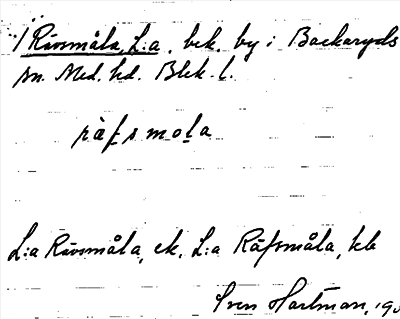 Rävsmåla, L:a, bek. by i Backaryds
sn. Med. hd. Blek. l.
räfsmola
L:a Rävsmåla, ek. L:a Räfsmåla, kb
Sven Hartman, 19